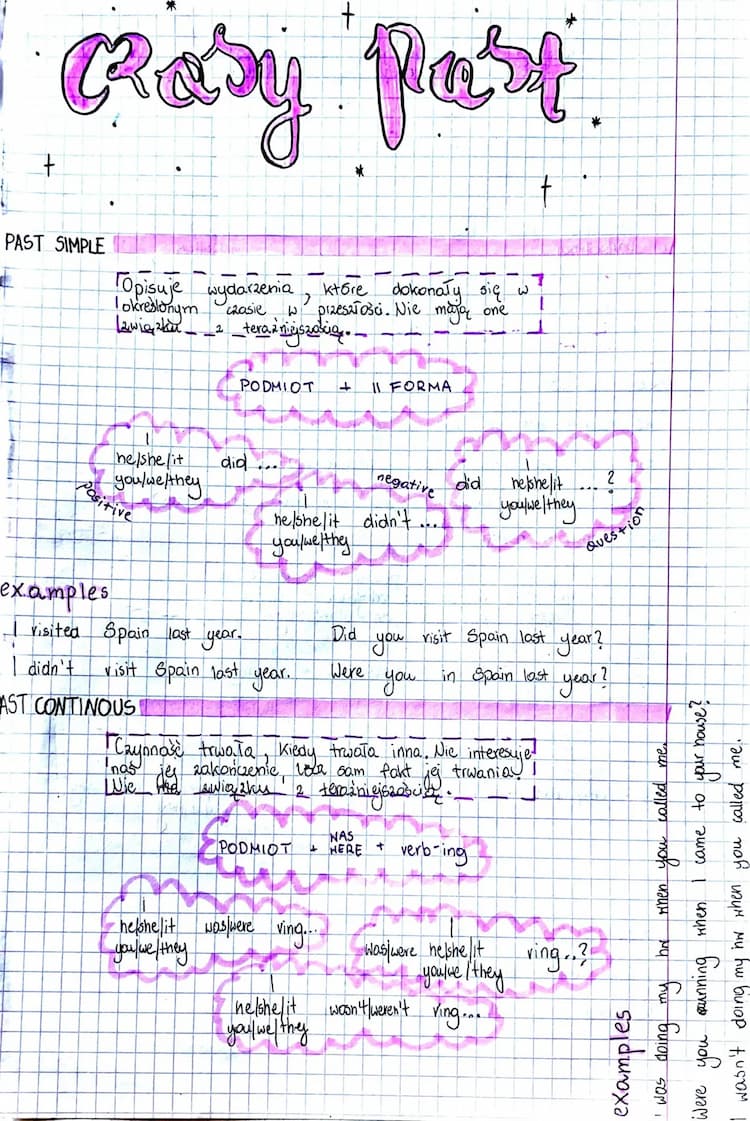 crazy Past
PAST SIMPLE
Opisuje wydarzenia, które dokonały się w
określonym czasie w przeszłości. Nie mają one
związku z teraźniejszością.
PODMIOT + II FORMA
I
he/she/it did ...
you/we/they
positive
I
he/she/it didn't ...
you/we/they
negative
I
did he/she/it ... ?
you/we/they
question
examples
I visited Spain last year.
Did you visit Spain last year?
I didn't visit Spain last year.
Were you in Spain last year?
AST CONTINOUS
Czynność trwała, kiedy trwała inna. Nie interesuje
nas jej zakończenie, sam fakt jej trwania.
Nie ma związku z teraźniejszością.
WAS
PODMIOT + WERE + verb-ing
I
he/she/it was/were ring...
you/we/they
I
was/were he/she/it ring..?
you/we/they
I
he/she/it wasn't/weren't ring...
you/we/they
examples
I was doing my hw when you called me.
Were you running when I came to your house?
I wasn't doing my hw when you called me.